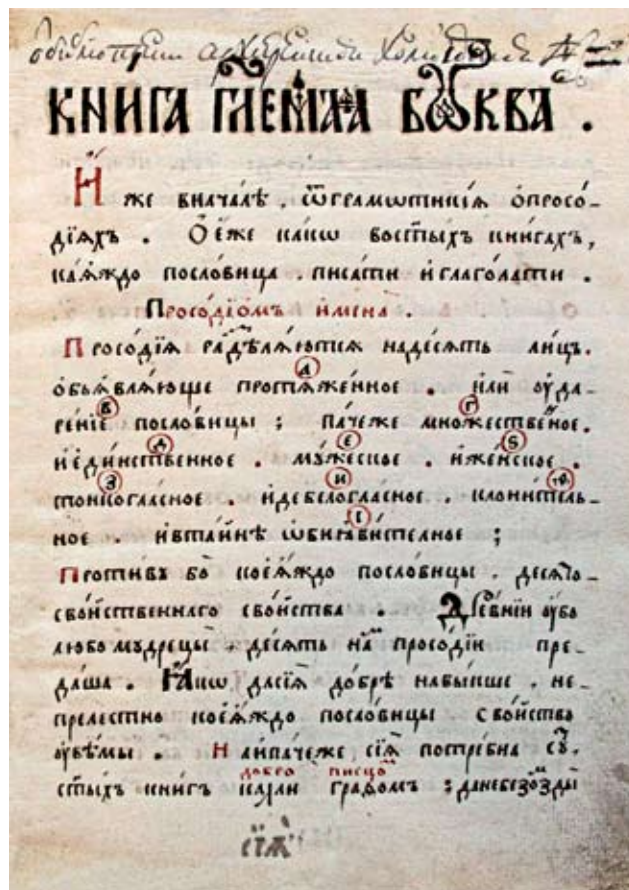 КНИГА ГЛЕМАА БꙊКВА .
Й же вначалѣ . ѿграмѡтикїѧ ѻпросо́-
дїѧхъ . Ѻ е́же какѡ восст҃ы́хъ книгахъ,
каѧ́ждо пословица . писати и҆глаголати .
Просо́дїѡмъ и҆мена .
Просо́дїѧ раздѣлѧ́ютсѧ надесѧть лицъ .
А
ѻбъѧвлѧ́юще протѧже́нное . и҆лѝ ᲂуда-
В Г
ре́нїе посло́вицы ; па́чеже мно́жественное .
Д Е Ѕ
и҆еди́нственное . мꙋ́жеское . и҆же́нское .
З И Ѳ
тонкогла́сное . и҆дебелогла́сное . клони́тель-
І
ное . и҆вта́йнѣ ѡбиꙗви́телное ;
Противꙋ бо̀ коеѧ́ждо посло́вицы . десѧто-
сво́йственнаго сво́йства . Дре́внїи ᲂу҆́бо
любомꙋдрецы̀ . де́сѧть на́мъ просо́дїи пре-
да́ша . Ꙗ҆́кѡ дасїѧ̀ до́брѣ навы́кше . не-
преле́стно коеѧ́ждо посло́вицы сво́йство
ᲂу҆вѣ́мы . Наипа́чеже сїѧ̀ потре́бна сꙋ́
до́бро писцо́мъ
ст҃ы́хъ кни́гъ и҆лѝ гра́фомъ ; данебезъѻзды
сїѧ̀